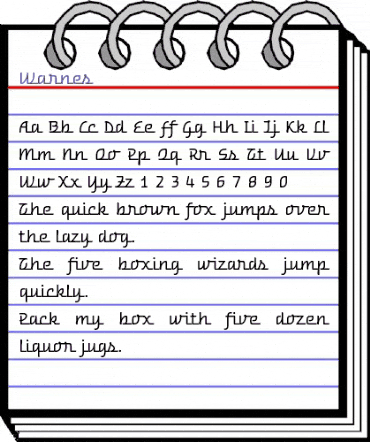 Warnes
Aa Bb Cc Dd Ee ff Gg Hh Ii Jj Kk Ll
Mm Nn Oo Pp Qq Rr Ss Tt Uu Vv
Ww Xx Yy Zz 1 2 3 4 5 6 7 8 9 0
The quick brown fox jumps over
the lazy dog.
The five boxing wizards jump
quickly.
Pack my box with five dozen
liquor jugs.